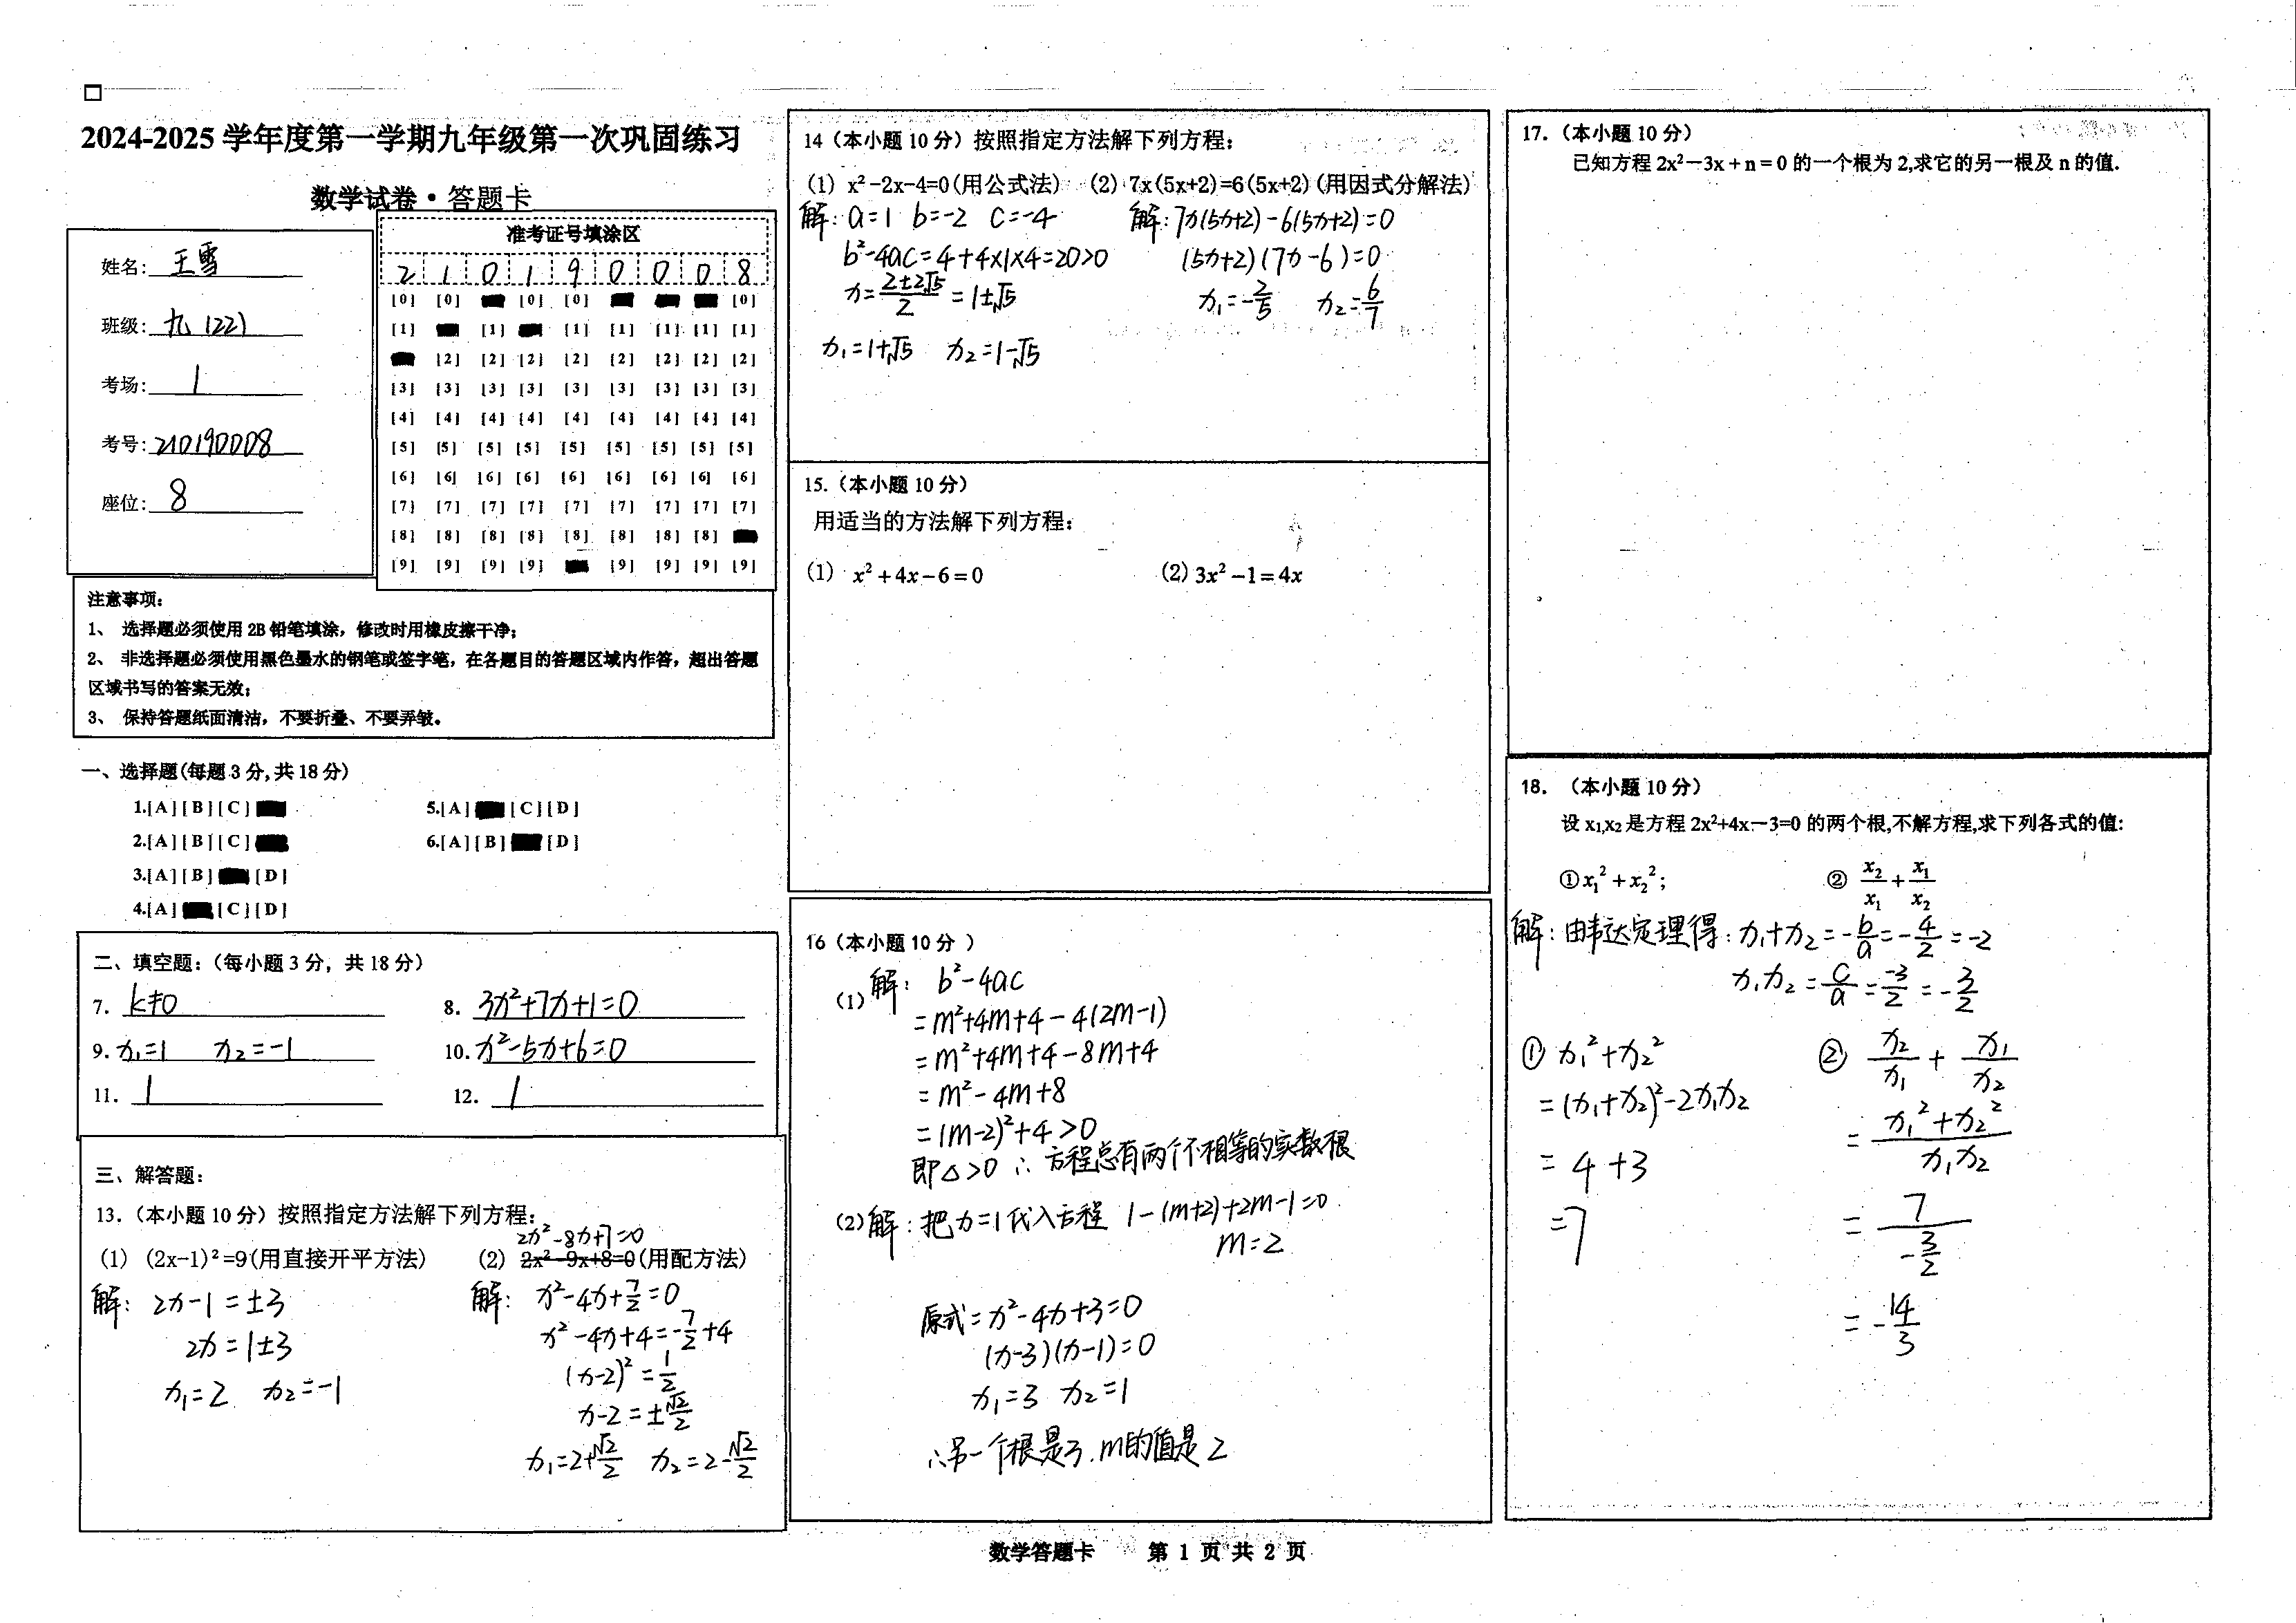 2024-2025 学年度第一学期九年级第一次巩固练习
数学试卷·答题卡
姓名：王雪
班级：九（22）
考场：1
考号：210190008
座位：8
准考证号填涂区
2 1 0 1 9 0 0 0 8
[0] [0] [0] [0] [0]
[1] [1] [1] [1] [1] [1] [1]
[2] [2] [2] [2] [2] [2] [2] [2]
[3] [3] [3] [3] [3] [3] [3] [3] [3]
[4] [4] [4] [4] [4] [4] [4] [4] [4]
[5] [5] [5] [5] [5] [5] [5] [5] [5]
[6] [6] [6] [6] [6] [6] [6] [6] [6]
[7] [7] [7] [7] [7] [7] [7] [7] [7]
[8] [8] [8] [8] [8] [8] [8] [8]
[9] [9] [9] [9] [9] [9] [9] [9]
注意事项：
1、 选择题必须使用 2B 铅笔填涂，修改时用橡皮擦干净；
2、 非选择题必须使用黑色墨水的钢笔或签字笔，在各题目的答题区域内作答，超出答题
区域书写的答案无效；
3、 保持答题纸面清洁，不要折叠、不要弄皱。
一、选择题(每题 3 分,共 18 分)
1.[A][B][C] 5.[A] [C][D]
2.[A][B][C] 6.[A][B] [D]
3.[A][B] [D]
4.[A] [C][D]
二、填空题：（每小题 3 分，共 18 分）
7. k≠0 8. 3x²+7x+1=0
9. x₁=1 x₂=-1 10. x²-5x+6=0
11. 1 12. 1
三、解答题：
13.（本小题 10 分）按照指定方法解下列方程：
2x²-8x+7=0
(1) (2x-1)²=9(用直接开平方法) (2) 2x²-9x+8=0(用配方法)
解: 2x-1=±3
2x=1±3
x₁=2 x₂=-1
解: x²-4x+7/2=0
x²-4x+4=-7/2+4
(x-2)²=1/2
x-2=±√2/2
x₁=2+√2/2 x₂=2-√2/2
14（本小题 10 分）按照指定方法解下列方程：
(1) x²-2x-4=0(用公式法) (2) 7x(5x+2)=6(5x+2)(用因式分解法)
解: a=1 b=-2 c=-4
b²-4ac=4+4×1×4=20>0
x=(2±2√5)/2=1±√5
x₁=1+√5 x₂=1-√5
解: 7x(5x+2)-6(5x+2)=0
(5x+2)(7x-6)=0
x₁=-2/5 x₂=6/7
15.（本小题 10 分）
用适当的方法解下列方程：
(1) x²+4x-6=0 (2) 3x²-1=4x
16（本小题 10 分 ）
(1) 解: b²-4ac
=m²+4m+4-4(2m-1)
=m²+4m+4-8m+4
=m²-4m+8
=(m-2)²+4>0
即△>0 ∴方程总有两个不相等的实数根
(2) 解: 把x=1代入方程 1-(m+2)+2m-1=0
m=2
原式=x²-4x+3=0
(x-3)(x-1)=0
x₁=3 x₂=1
∴另一个根是3.m的值是2
17.（本小题 10 分）
已知方程 2x²-3x+n=0 的一个根为 2,求它的另一根及 n 的值.
18. （本小题 10 分）
设 x₁,x₂ 是方程 2x²+4x-3=0 的两个根,不解方程,求下列各式的值:
①x₁²+x₂²; ② x₂/x₁+x₁/x₂
解: 由韦达定理得: x₁+x₂=-b/a=-4/2=-2
x₁x₂=c/a=-3/2=-3/2
① x₁²+x₂²
=(x₁+x₂)²-2x₁x₂
=4+3
=7
② x₂/x₁+x₁/x₂
=(x₁²+x₂²)/(x₁x₂)
=7/(-3/2)
=-14/3
数学答题卡 第 1 页 共 2 页